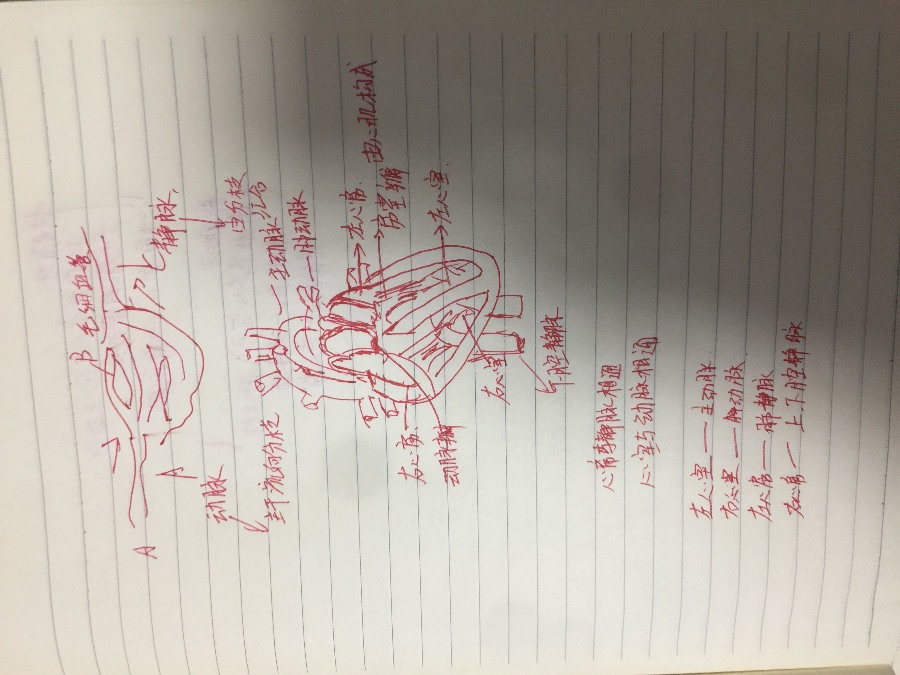 B 毛细血管
A
A
C 静脉
动脉
由分枝汇合
主干流向分枝
主动脉
肺动脉
左心房
由心肌构成
房室瓣
左心室
右心房
动脉瓣
右心室
下腔静脉
心房与静脉相通
心室与动脉相通
左心室—主动脉
右心室—肺动脉
左心房—肺静脉
右心房—上.下腔静脉